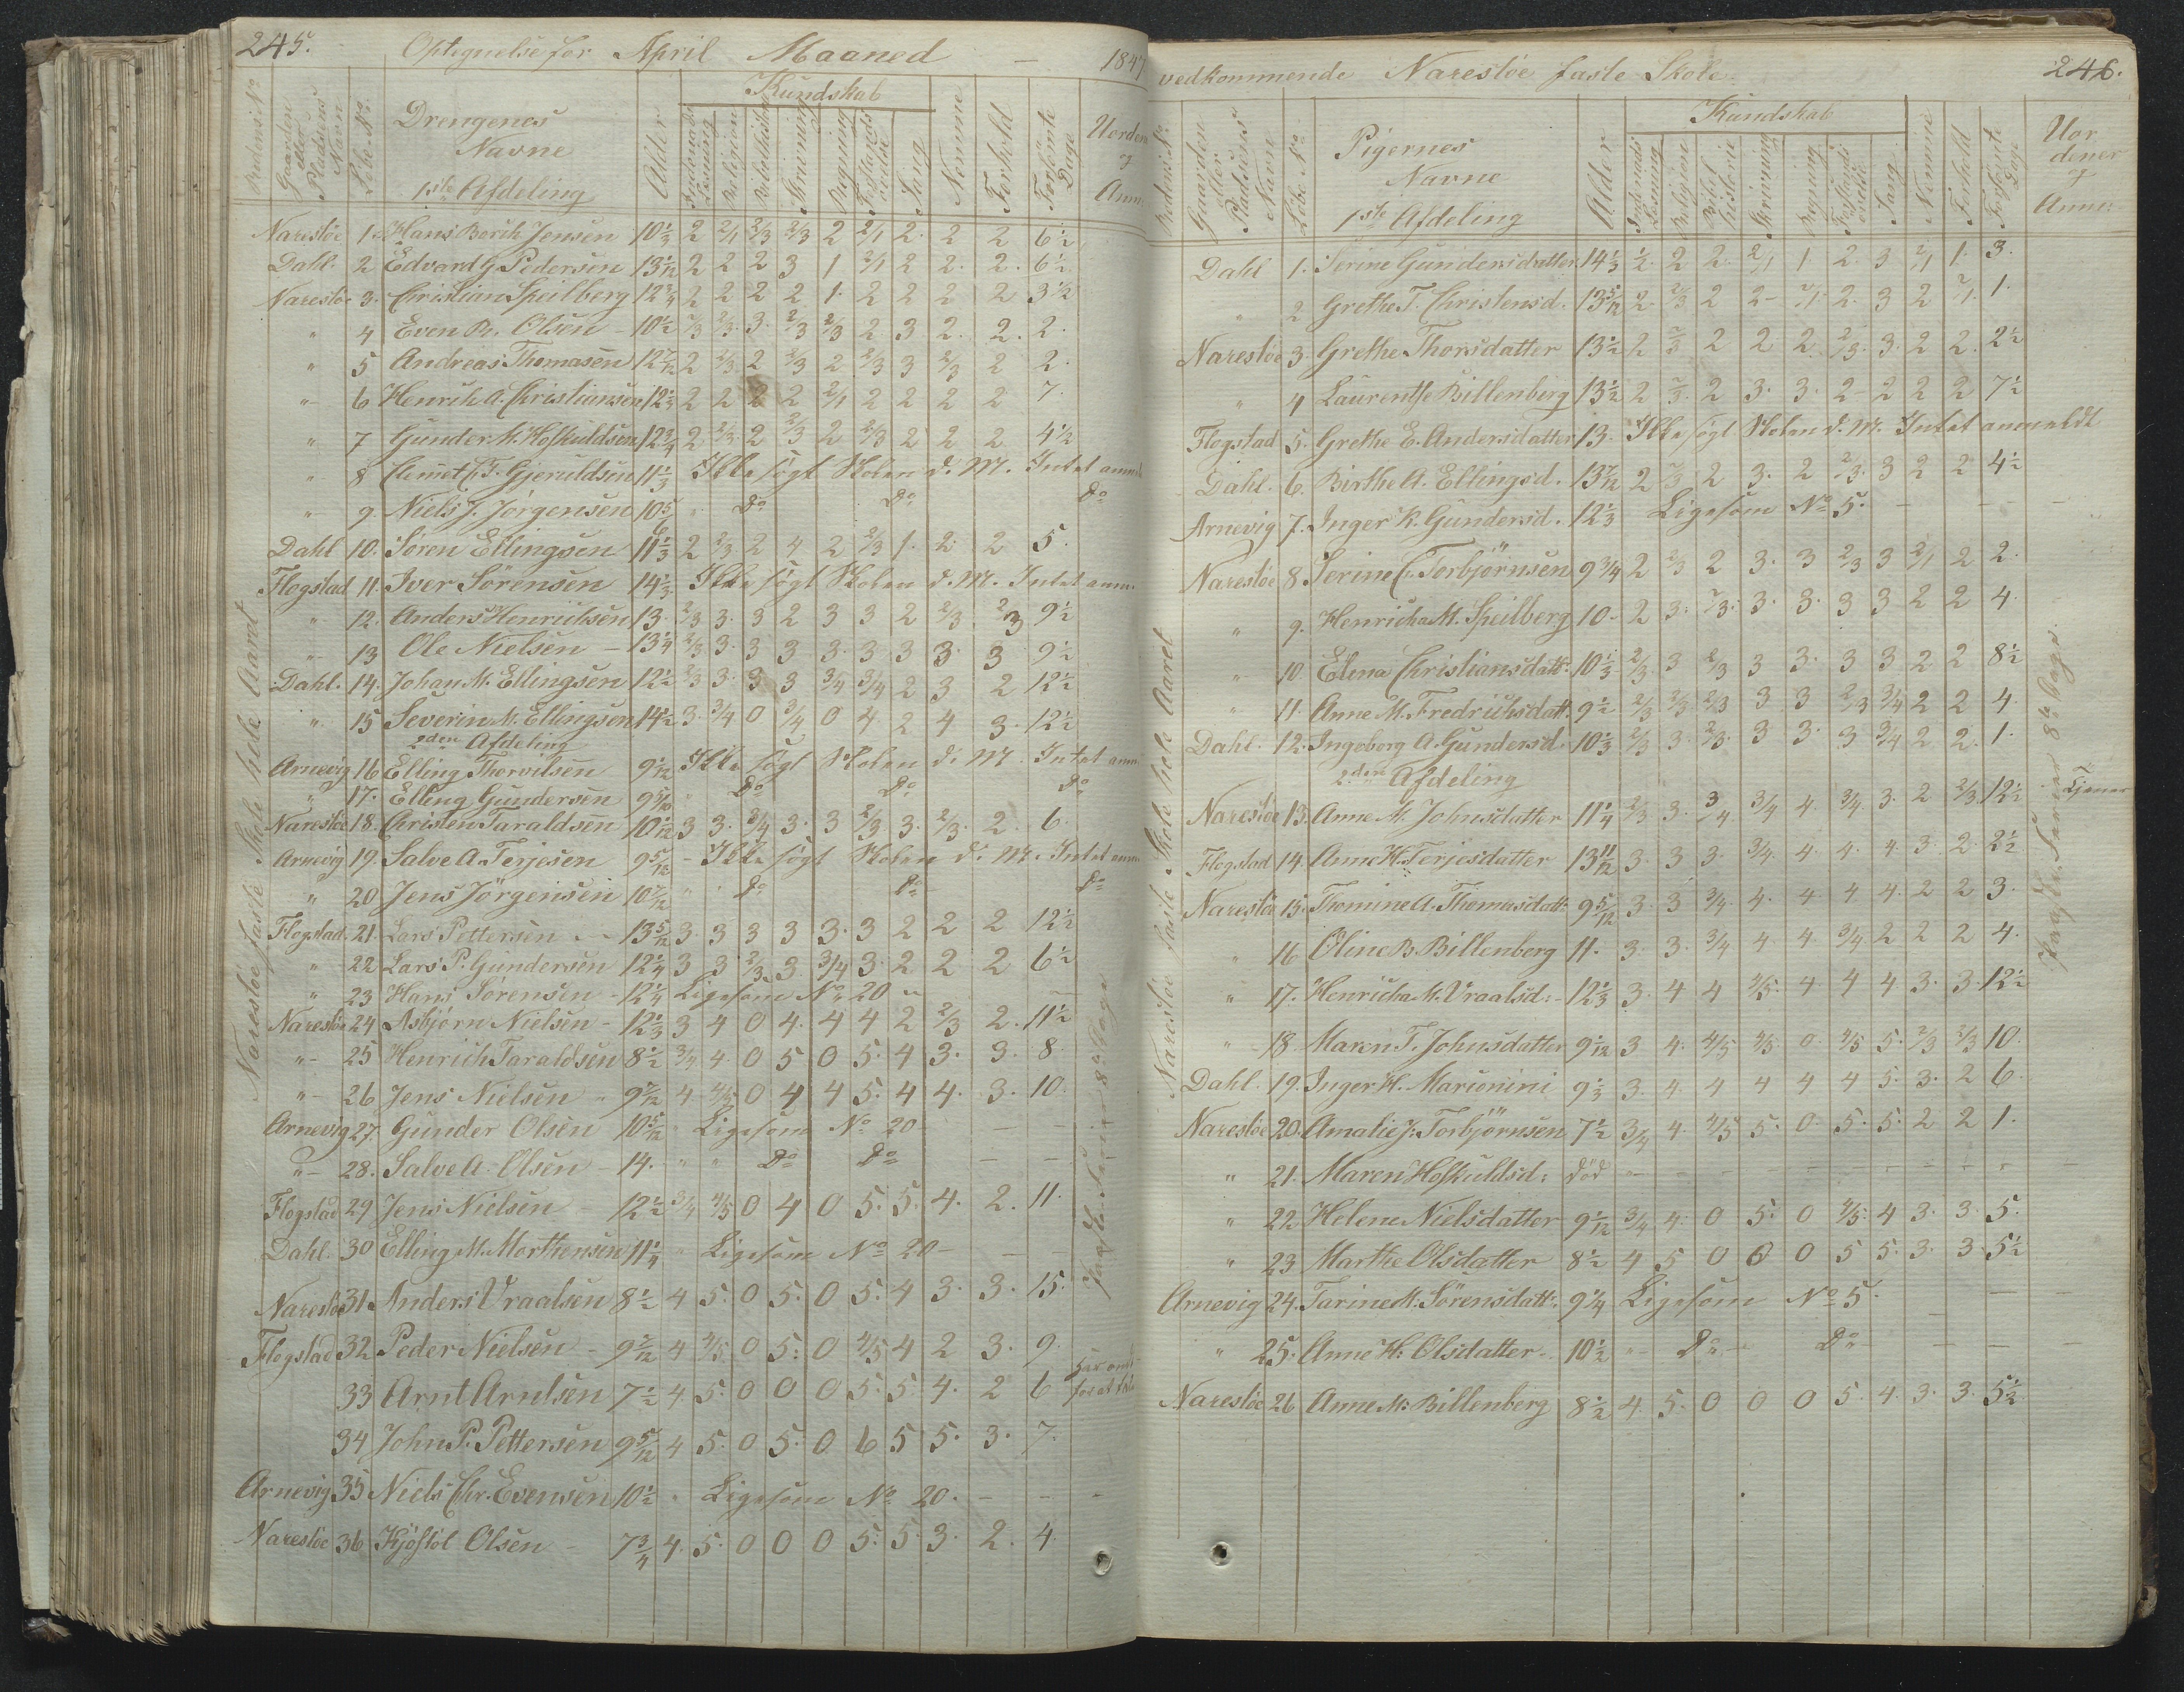 245.
Optegnelse for April Maaned — 1847
Kundskab
Gaarden eller Pladsens Navn
Løbe No
Drengenes Navne
1ste Afdeling
Alder
Religion
Skrivning
Regning
Sang
Nemme
Forhold
Forsømte Dage
Narestöe 1. Hans Berth Jensen 10 1/3 2 2/1 2/3 2/3 2 2/1 2. 2 2 6 1/2
Dahl. 2 Edvard G. Pedersen 13 1/12 2 2 2 3 1 2/1 2 2. 2. 6 1/2
Narestöe 3. Christian Speilberg 12 3/4 2 2 2 2 1. 2 2 2 2 3 1/2
" 4 Even Br. Olsen - 10 1/2 2/3 2/3. 3. 2/3 2/3 2 3 2. 2. 2.
" 5 Andreas Thomasen 12 7/12 2 2/3 2 2/3 2 2/3 3 2/3 2 2.
" 6 Henrik A. Christiansen 12 1/3 2 2 2 2 2/1 2 2 2 2 7.
" 7 Gunder K. Hofkuldsen 12 3/4 2 2/3. 2 2/3 2 2/3 2 2 2 4 1/2
" 8 Clemet C. F. Gjeruldsen 11 1/3 Ikke søgt Skolen d. M. Intet anm
" 9. Niels J. Jörgensen 10 5/6 " Do Do Do
Dahl 10. Sören Ellingsen 11 1/3 2 2/3 2 4 2 2/3 1. 2. 2 5.
Flogstad 11. Iver Sörensen 14 1/3. Ikke søgt Skolen d. M. Intet anm.
" 12. Anders Henrichsen 13. 2/3 3. 3 2 3 3 2 2/3. 2/3 9 1/2
" 13 Ole Nielsen - 13 1/4 2/3 3. 3 3 3. 3 3 3. 3 9 1/2
Dahl. 14. Johan M. Ellingsen 12 1/2 2/3 3. 3 3 3/4 3/4 2 3 2 12 1/2
" 15 Severin M. Ellingsen 14 1/2 3. 3/4 0 3/4 0 4. 2 4 3. 12 1/2
2den Afdeling
Arnevig 16 Elling Thorvilsen 9 1/12 Ikke søgt Skolen d. M. Intet anm
" 17. Elling Gundersen 9 5/10 " Do Do Do
Narestöe 18. Christen Taraldsen 10 1/12 3 3. 3/4 3. 3 2/3 3. 2/3. 2. 6.
Arnevig 19. Salve A. Terjesen 9 5/12 - Ikke søgt Skolen d. M. Intet anm
" 20 Jens Jörgensen 10 7/12 " " Do Do Do
Flogstad. 21. Lars Pettersen - 13 5/12 3. 3 3 3 3. 3 2 2 2 12 1/2
" 22 Lars P. Gundersen 12 1/4 3 3 2/3 3. 3/4 3. 2 2 2 6 1/2
" 23 Hans Sörensen - 12 1/4 Ligesom No 20
Narestöe 24 Asbjørn Nielsen - 12 1/3 3 4 0 4. 4 4 2 2/3 2. 11 1/2
" 25 Henrich Taraldsen 8 1/2 3/4 4. 0 5 0 5. 4 3. 3. 8.
" 26 Jens Nielsen - 9 7/12 4 4/5 0 4 4 5. 4 4. 3. 10.
Arnevig 27. Gunder Olsen 10 5/12 " Ligesom No 20 - — —
" 28. Salve A. Olsen - 14. " " Do Do — —
Flogstad 29 Jens Nielsen - 12 1/2 3/4 4/5 0 4 0 5. 5. 4. 2. 11.
Dahl. 30 Elling M. Morthensen 11 1/4 " Ligesom No 20 - — —
Narestöe 31. Anders Vraalsen 8 1/2 4 5. 0 5. 0 5. 4 3. 3. 15.
Flogstad 32 Peder Nielsen - 9 7/12 4 4/5 0 5. 0 4/5 4 2 3. 9.
33 Arnt Arntsen 7 1/2 4. 5. 0 0 0 5. 5. 4. 2 6
34 John P. Pettersen 9 5/12 4 5. 0 5. 0 6 5 5. 3. 7.
Arnevig 35 Niels Chr. Evensen 10 1/2 " Ligesom No 20. - - -
Narestöe 36 Kjöstöl Olsen - 7 3/4 4. 5. 0 0 0 5. 5. 3. 2. 4.
Narestöe faste Skole hele Aaret
vedkommende Narestöe faste Skole 246.
Kundskab
Gaarden eller Pladsens Navn
Löbe No
Pigernes Navne
1ste Afdeling
Alder
Religion
Bibel historie
Skrivning
Regning
Sang
Nemme
Forhold
Forsømte Dage
Uor dener og Anm:
Dahl 1. Serine Gundersdatter 14 1/3 1/2. 2 2. 2/1 1 2. 3 2/1 1. 3.
" 2 Grethe T. Christensd. 13 5/12 2. 2/3 2 2- 2/1. 2. 3 2 2/1. 1.
Narestöe 3. Grethe Thorsdatter 13 1/2 2 2/3 2 2 2 2/3. 3. 2 2. 2 1/2
" 4 Laurentse Billenberg 13 1/2 2 2/3. 2 3. 3. 2- 2 2 2 7 1/2
Flogstad 5. Grethe E. Andersdatter 13. Ikke søgt Skolen d. M. Intet anmeldt
Dahl. 6. Birthe A. Ellingsd. 13 7/12 2 2/3 2 3. 2 2/3. 3 2 2 4 1/2
Arnevig 7. Inger K. Gundersd. 12 1/3 Ligesom No 5. — — —
Narestöe 8. Serine C. Torbjörnsen 9 3/4 2 2/3 2 3. 3 2/3 3 2/1 2 2.
" 9. Henricha M. Speilberg 10- 2 3. 2/3. 3. 3. 3 3 2 2 4.
" 10. Elena Christiansdatt: 10 1/3 2/3. 3 2/3 3 3. 3 3 2 2 8 1/2
" 11. Anne M. Fredrichsdatt. 9 1/2 2/3 2/3. 2/3 3 3 2/3 3/4 2 2 4.
Dahl. 12. Ingeborg A. Gundersd. 10 1/3 2/3 3. 2/3. 3 3. 3 3/4 2 2. 1.
2den Afdeling
Narestöe 13. Anne M. Johnsdatter 11 1/4 2/3 3. 3/4 3/4 4. 3/4. 3. 2 2/3. 12 1/2
Flogstad 14. Anne H. Terjesdatter 13 11/12 3. 3 3. 3/4. 4. 4. 4. 3. 2. 2 1/2
Narestöe 15. Thomine A. Thomasdatt: 9 5/12 3. 3 3/4. 4. 4. 4 4. 2 2 3.
" 16 Oline B. Billenberg 11. 3. 3. 3/4 4. 4 3/4 2 2 2 4.
" 17. Henricha K. Vraalsd: - 12 1/3 3. 4 4 4/5. 4. 4 4. 3. 3. 12 1/2
" 18. Maren T. Johnsdatter 9 1/12 3 4. 4/5 4/5. 0. 4/5 5. 2/3 2/3 10.
Dahl. 19. Inger H. Marionini 9 1/3 3. 4. 4 4 4 4 5. 3. 2 6.
Narestöe 20. Amalie J. Torbjörnsen 7 1/2 3/4 4. 4/5 5. 0. 5. 5. 2 2 1.
" 21. Maren Hofkuldsd: död - - - - - - - - -
" 22 Helene Nielsdatter 9 1/12 3/4 4. 0 5. 0 4/5. 4 3. 3. 5.
" 23 Marthe Olsdatter 8 1/2 4 5 0 0 0 5 5. 3. 3. 5 1/2
Arnevig 24. Tarine M. Sörensdatt. 9 1/4 Ligesom No 5. — — —
" 25. Anne H. Olsdatter - 10 1/2 " Do - Do - — — —
Narestöe 26 Anne M. Billenberg 8 1/2 4. 5. 0 0 0 5. 4. 3. 3. 5 1/2
Narestöe faste Skole hele Aaret